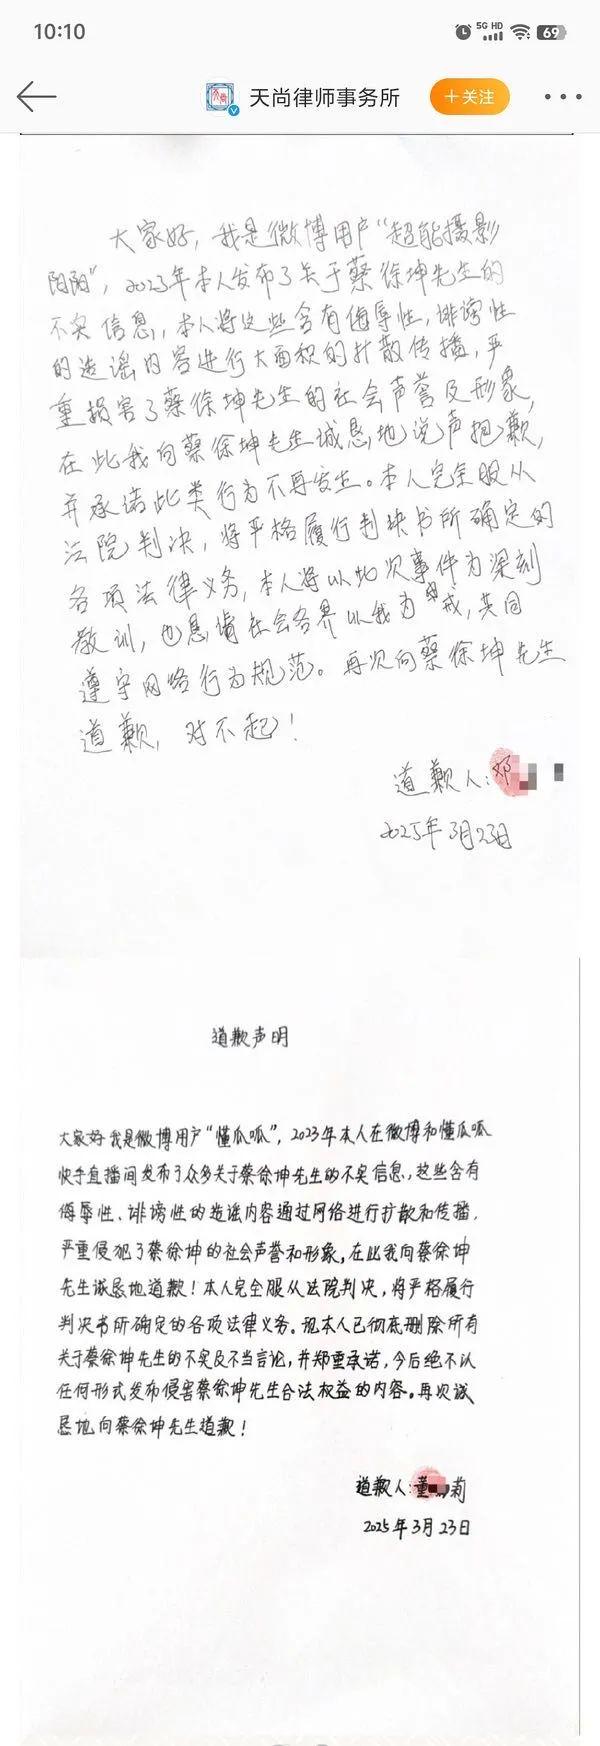 10:10
5G HD
69
天尚律师事务所
+关注
大家好，我是微博用户“超能摄影
阳阳”，2023年本人发布了关于蔡徐坤先生的
不实信息，本人将这些含有侮辱性，诽谤性
的造谣内容进行大面积的扩散传播，严
重损害了蔡徐坤先生的社会声誉及形象，
在此我向蔡徐坤先生诚恳地说声抱歉，
并承诺此类行为不再发生。本人完全服从
法院判决，将严格履行判决书所确定的
各项法律义务，本人将以此次事件为深刻
教训，也恳请社会各界以我为戒，共同
遵守网络行为规范。再次向蔡徐坤先生
道歉，对不起！
道歉人：邓
2025年3月23日
道歉声明
大家好我是微博用户“懂瓜呱”，2023年本人在微博和懂瓜呱
快手直播间发布了众多关于蔡徐坤先生的不实信息，这些含有
侮辱性、诽谤性的造谣内容通过网络进行扩散和传播，
严重侵犯了蔡徐坤的社会声誉和形象，在此我向蔡徐坤
先生诚恳地道歉！本人完全服从法院判决，将严格履行
判决书所确定的各项法律义务。现本人已彻底删除所有
关于蔡徐坤先生的不实及不当言论，并郑重承诺，今后绝不以
任何形式发布侵害蔡徐坤先生合法权益的内容。再次诚
恳地向蔡徐坤先生道歉！
道歉人：董莉
2025年3月23日